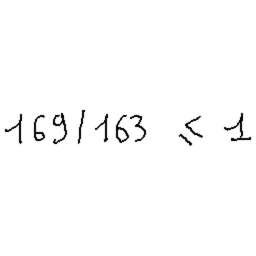 169/163 ⩽ 1